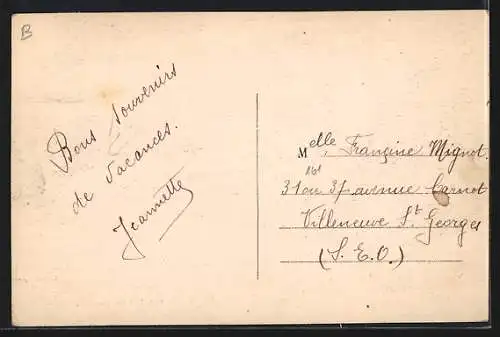 B
Bons souvenirs
de vacances.
Jeannette
Melle Françine Mignot.
161
31 ou 37 avenue Carnot
Villeneuve St Georges
(S. E. O.)